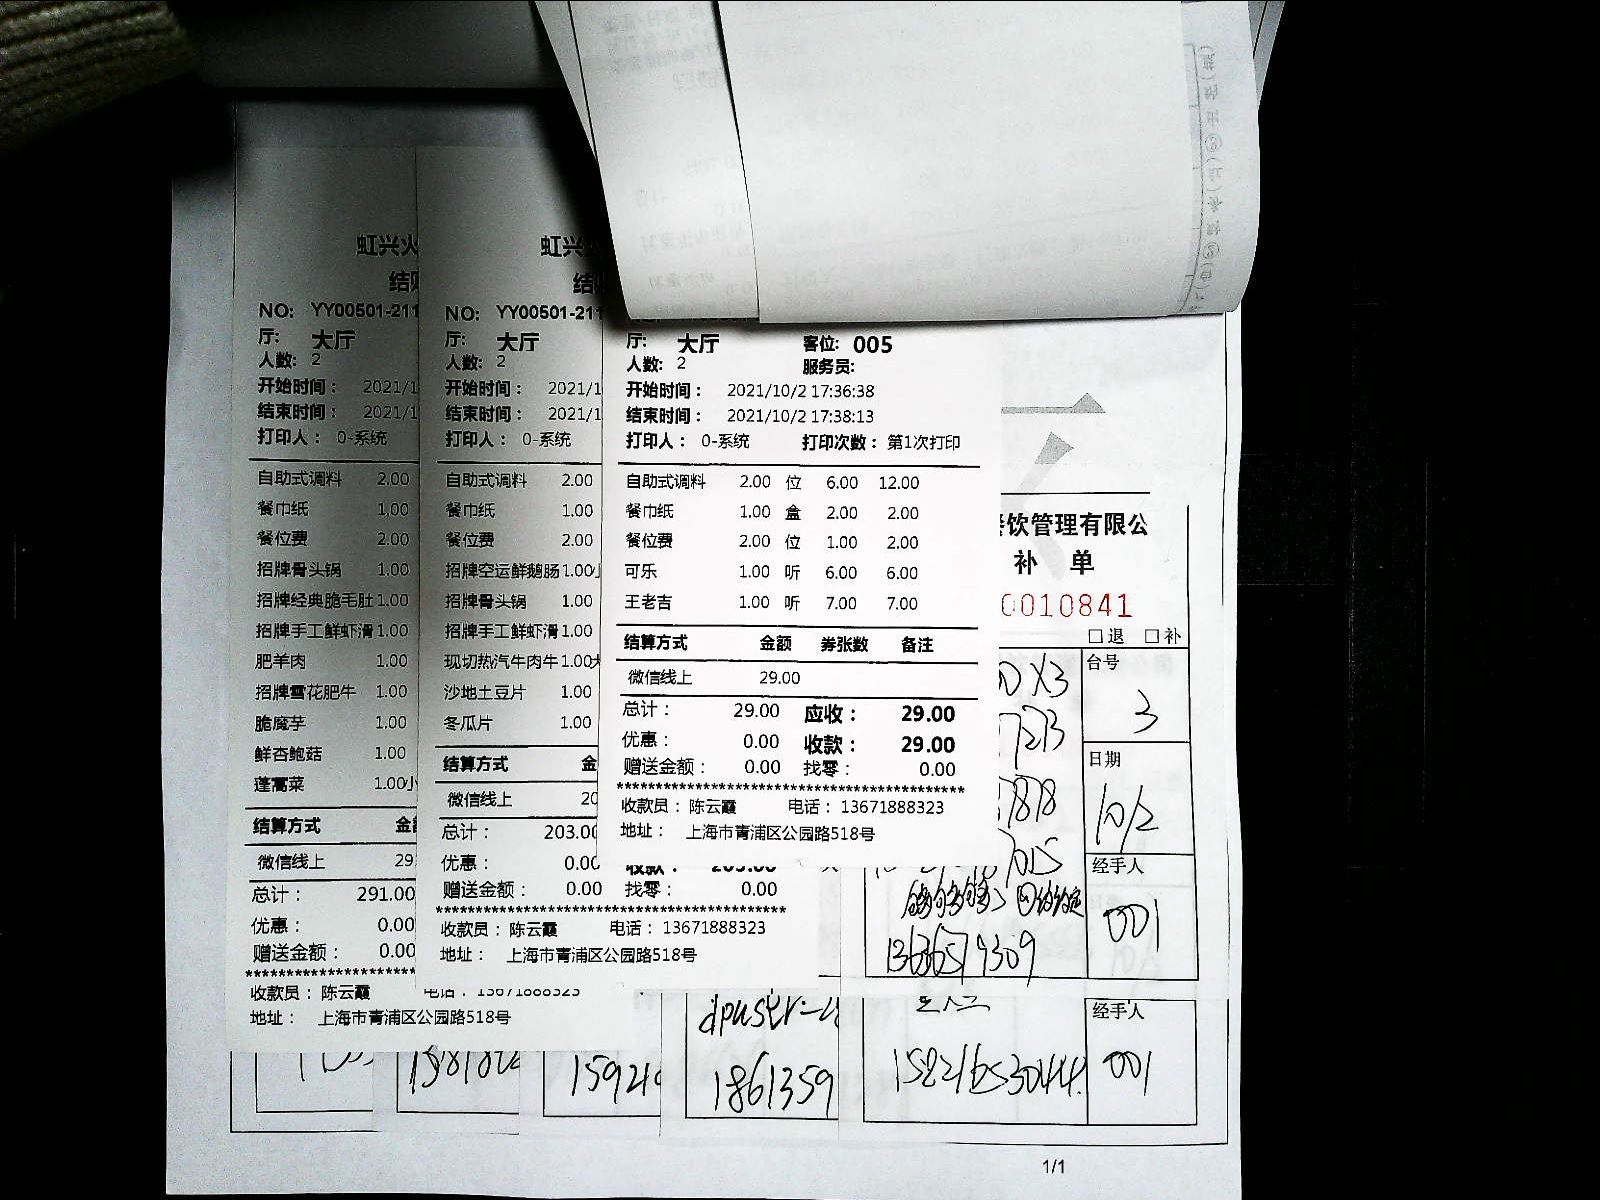 虹兴火
结
NO: YY00501-211
厅: 大厅
人数: 2
开始时间： 2021/1
结束时间： 2021/1
打印人： 0-系统
自助式调料 2.00
餐巾纸 1.00
餐位费 2.00
招牌骨头锅 1.00
招牌经典脆毛肚1.00
招牌手工鲜虾滑1.00
肥羊肉 1.00
招牌雪花肥牛 1.00
脆魔芋 1.00
鲜杏鲍菇 1.00
蓬蒿菜 1.00小
结算方式 金
微信线上 29
总计： 291.00
优惠： 0.00
赠送金额： 0.00
*****************
收款员：陈云霞 电话：13671888323
地址： 上海市青浦区公园路518号
虹兴
结
NO: YY00501-211
厅: 大厅
人数: 2
开始时间： 2021/1
结束时间： 2021/1
打印人： 0-系统
自助式调料 2.00
餐巾纸 1.00
餐位费 2.00
招牌空运鲜鹅肠1.00
招牌骨头锅 1.00
招牌手工鲜虾滑1.00
现切热汽牛肉牛1.00大
沙地土豆片 1.00
冬瓜片 1.00
结算方式 金
微信线上 20
总计： 203.00
优惠： 0.00 收款： 203.00
赠送金额： 0.00 找零： 0.00
***********************************
收款员：陈云霞 电话：13671888323
地址： 上海市青浦区公园路518号
厅: 大厅 客位: 005
人数: 2 服务员:
开始时间： 2021/10/2 17:36:38
结束时间： 2021/10/2 17:38:13
打印人： 0-系统 打印次数：第1次打印
自助式调料 2.00 位 6.00 12.00
餐巾纸 1.00 盒 2.00 2.00
餐位费 2.00 位 1.00 2.00
可乐 1.00 听 6.00 6.00
王老吉 1.00 听 7.00 7.00
结算方式 金额 券张数 备注
微信线上 29.00
总计： 29.00 应收： 29.00
优惠： 0.00 收款： 29.00
赠送金额： 0.00 找零： 0.00
***********************************
收款员：陈云霞 电话：13671888323
地址： 上海市青浦区公园路518号
餐饮管理有限公
补 单
0010841
□退 □补
台号
3
日期
10/2
经手人
001
13636579309
经手人
001
15821653044
dpuser-
1861359
15921
1/1